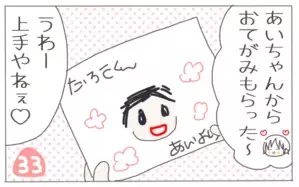 あいちゃんから
おてがみもらった〜
うわー
上手やねぇ♡
たろきくん
あいより
33